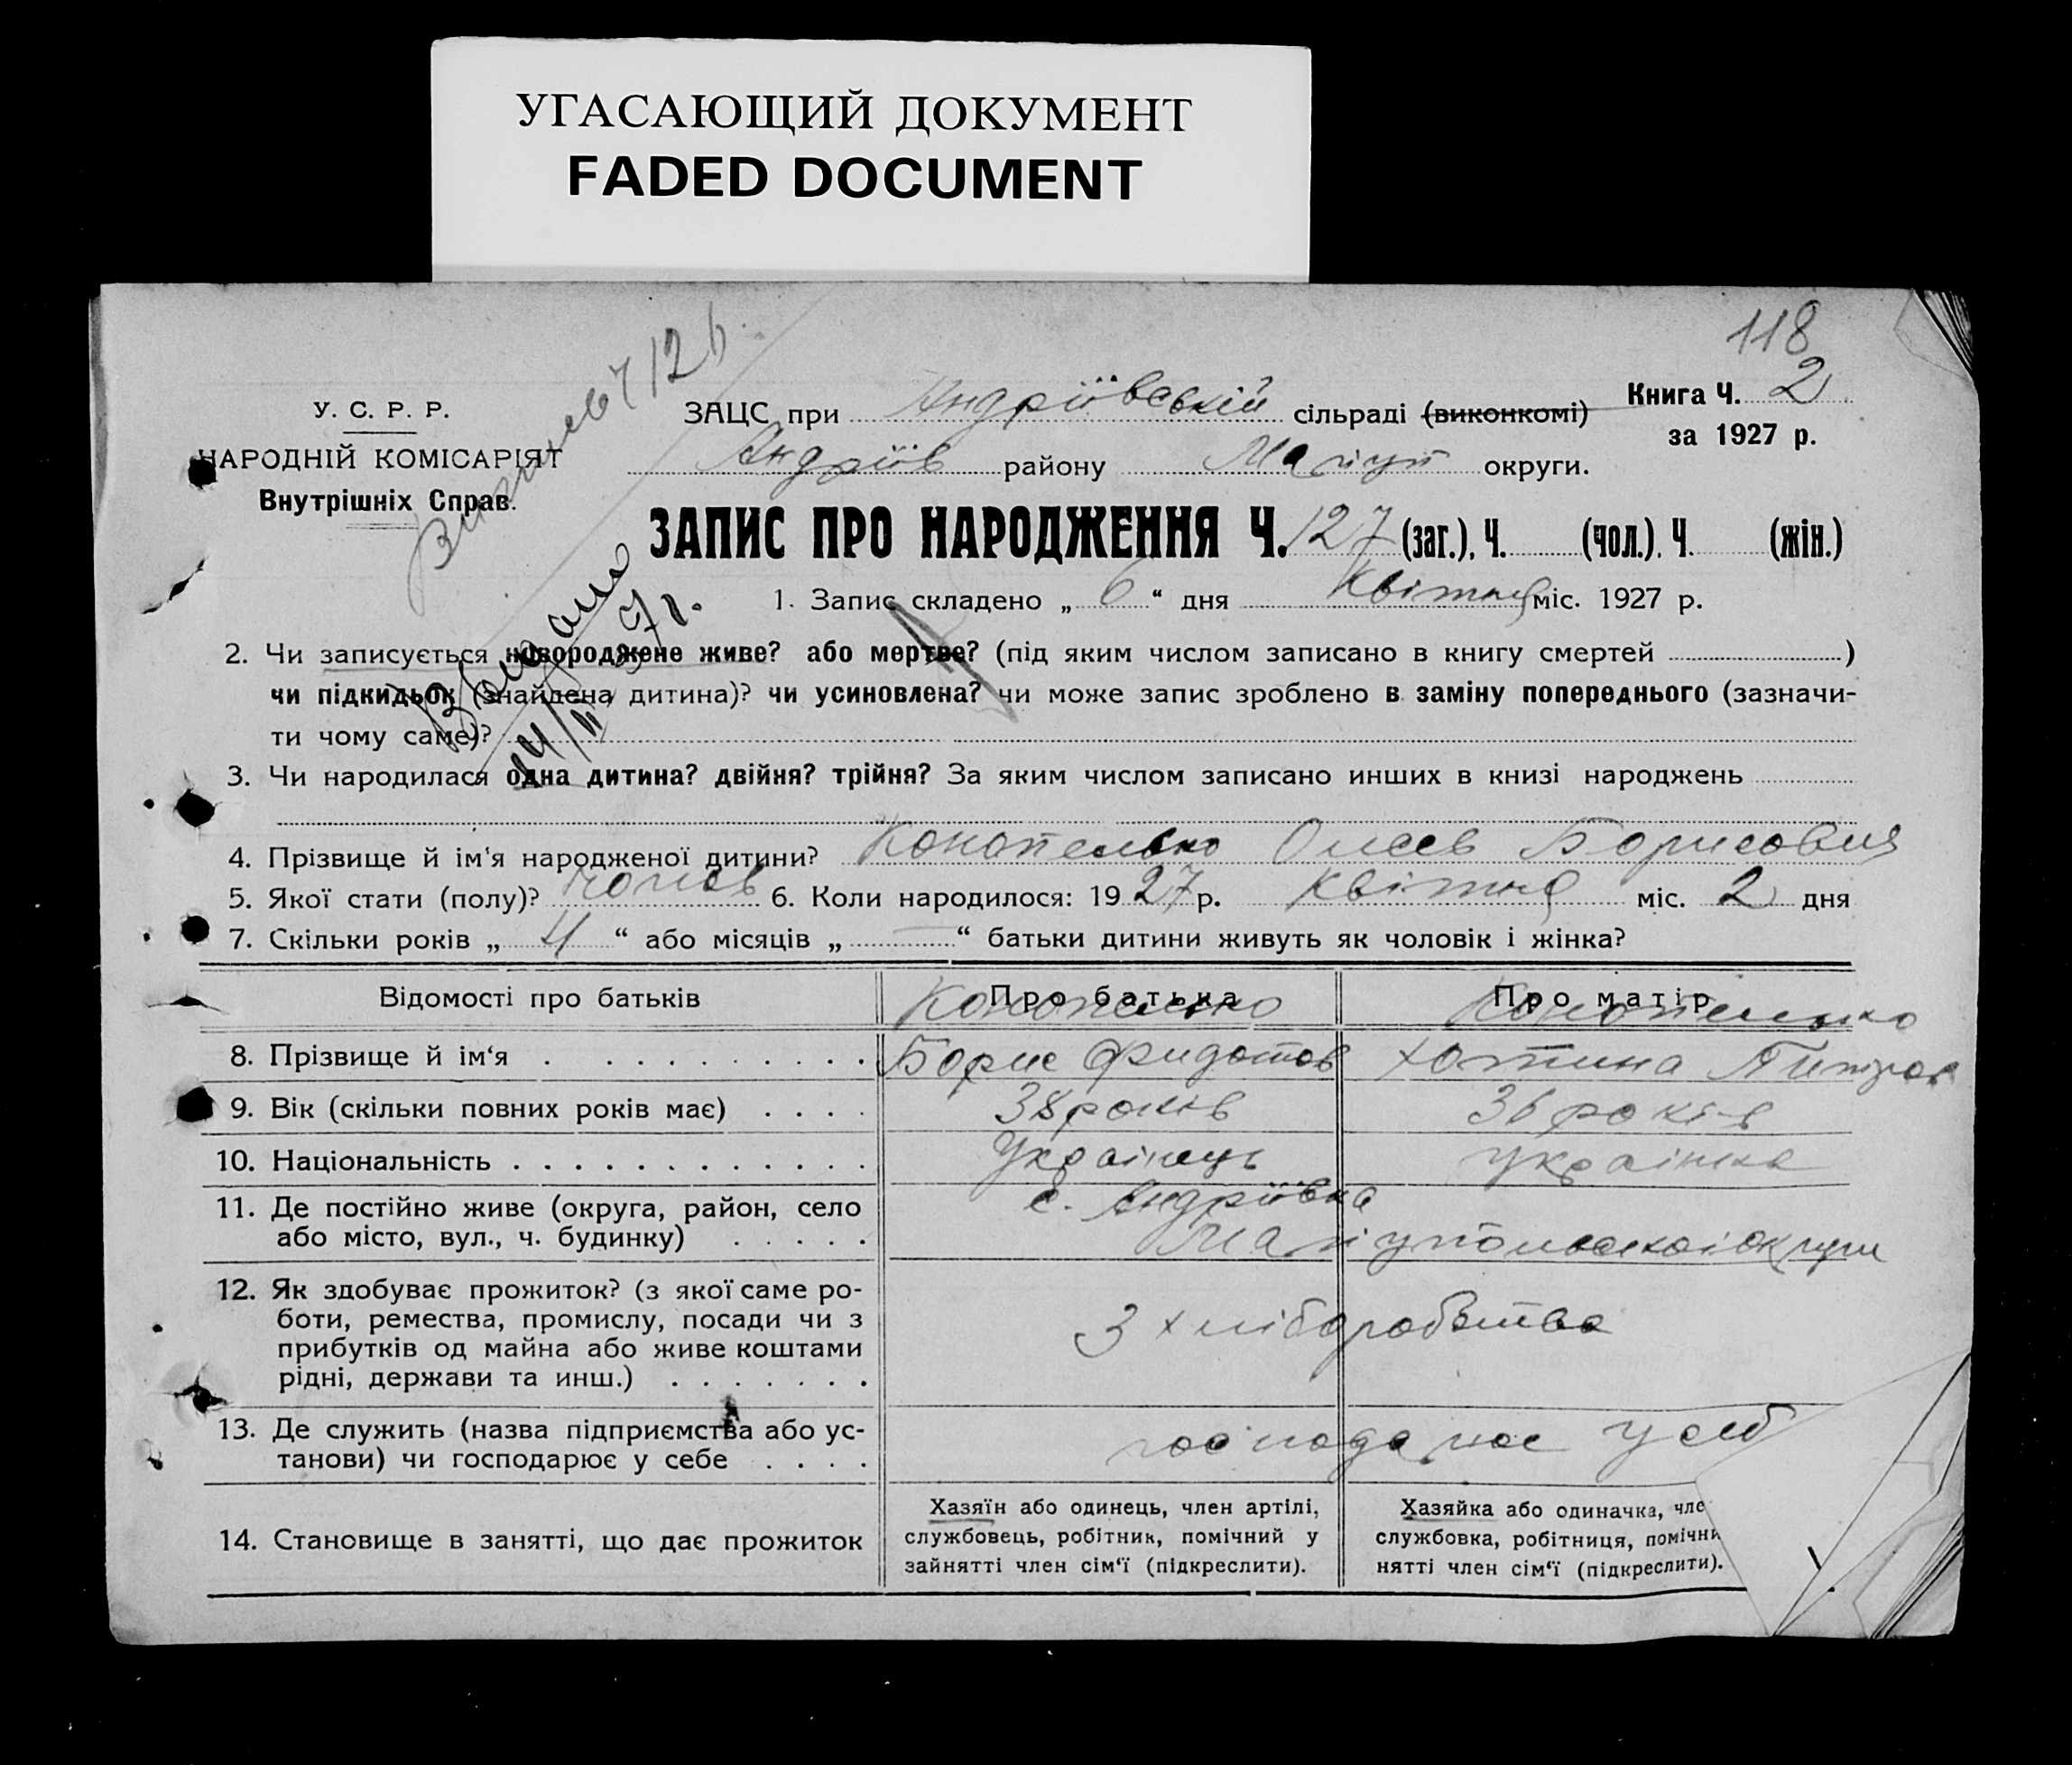 УГАСАЮЩИЙ ДОКУМЕНТ
FADED DOCUMENT
118
У. С. Р. Р.
НАРОДНІЙ КОМІСАРІЯТ
Внутрішніх Справ.
ЗАЦС при Андріївській сільраді (виконкомі)
Книга Ч. 2
за 1927 р.
Андріїв району Маріуп округи.
ЗАПИС ПРО НАРОДЖЕННЯ Ч. 127 (заг.), Ч. (чол.), Ч. (жін.)
1. Запис складено „ 6 “ дня Квітня міс. 1927 р.
2. Чи записується новороджене живе? або мертве? (під яким числом записано в книгу смертей )
чи підкидьок (знайдена дитина)? чи усиновлена? чи може запис зроблено в заміну попереднього (зазначи-
ти чому саме)?
3. Чи народилася одна дитина? двійня? трійня? За яким числом записано инших в книзі народжень
4. Прізвище й ім‘я народженої дитини? Конопелько Борисович
5. Якої стати (полу)? чолов 6. Коли народилося: 1927 р. Квітня міс. 2 дня
7. Скільки років „ 4 “ або місяців „ — “ батьки дитини живуть як чоловік і жінка?
Відомості про батьків Про батька Про матір
Конопелько Конопелько
8. Прізвище й ім‘я Борис Фидотов
9. Вік (скільки повних років має) 38 років 36 років
10. Національність Українець Українка
11. Де постійно живе (округа, район, село с. Андріївка
або місто, вул., ч. будинку) Маріупольської округи
12. Як здобуває прожиток? (з якої саме ро-
боти, ремества, промислу, посади чи з З хліборобства
прибутків од майна або живе коштами
рідні, держави та инш.)
13. Де служить (назва підприємства або ус- господарює у себ
танови) чи господарює у себе
14. Становище в занятті, що дає прожиток
Хазяїн або одинець, член артілі,
службовець, робітник, помічний у
зайнятті член сім‘ї (підкреслити).
Хазяйка або одиначка, чле
службовка, робітниця, помічни
нятті член сім‘ї (підкреслити).